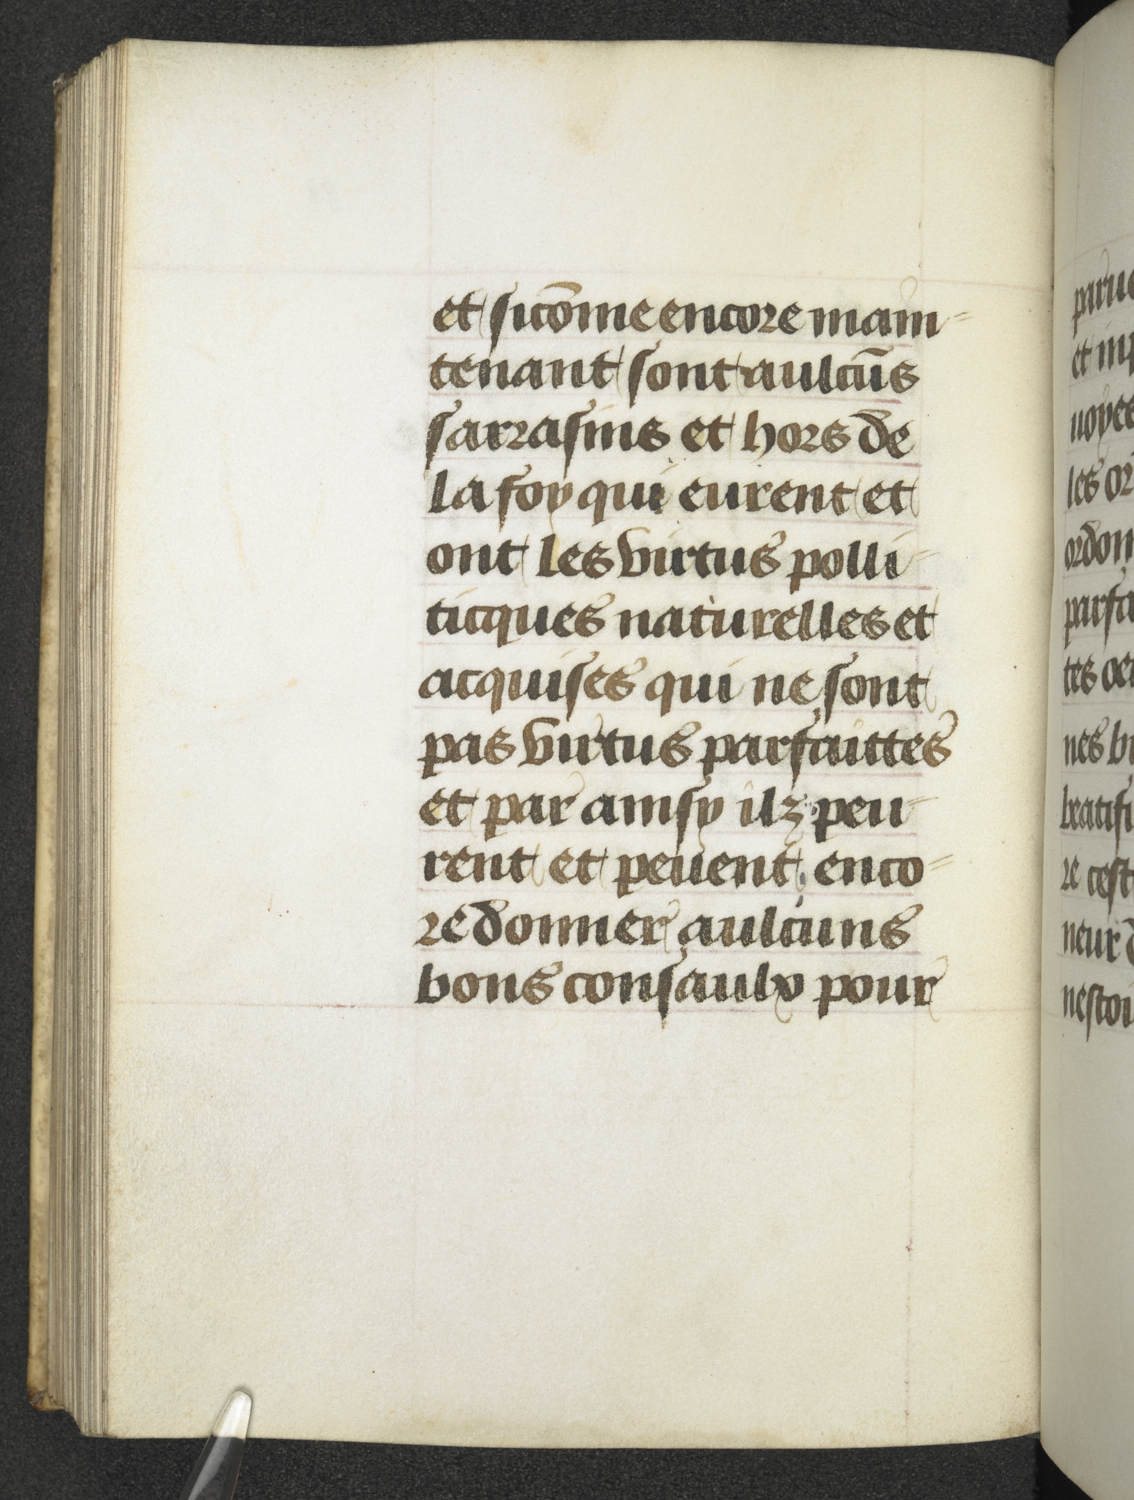 et sicōme encore main-
tenant sont aulcūs
sarrasins et hors de
la foy qui eurent et
ont les virtus polli-
ticques naturelles et
acquises qui ne sont
pas virtus parfaittes
et par ainsy ilz peu-
rent et peuent enco-
re donner aulcuns
bons consaulx pour
et
les
ordon
parfa
tes
nes
re cest
neur
nestoi